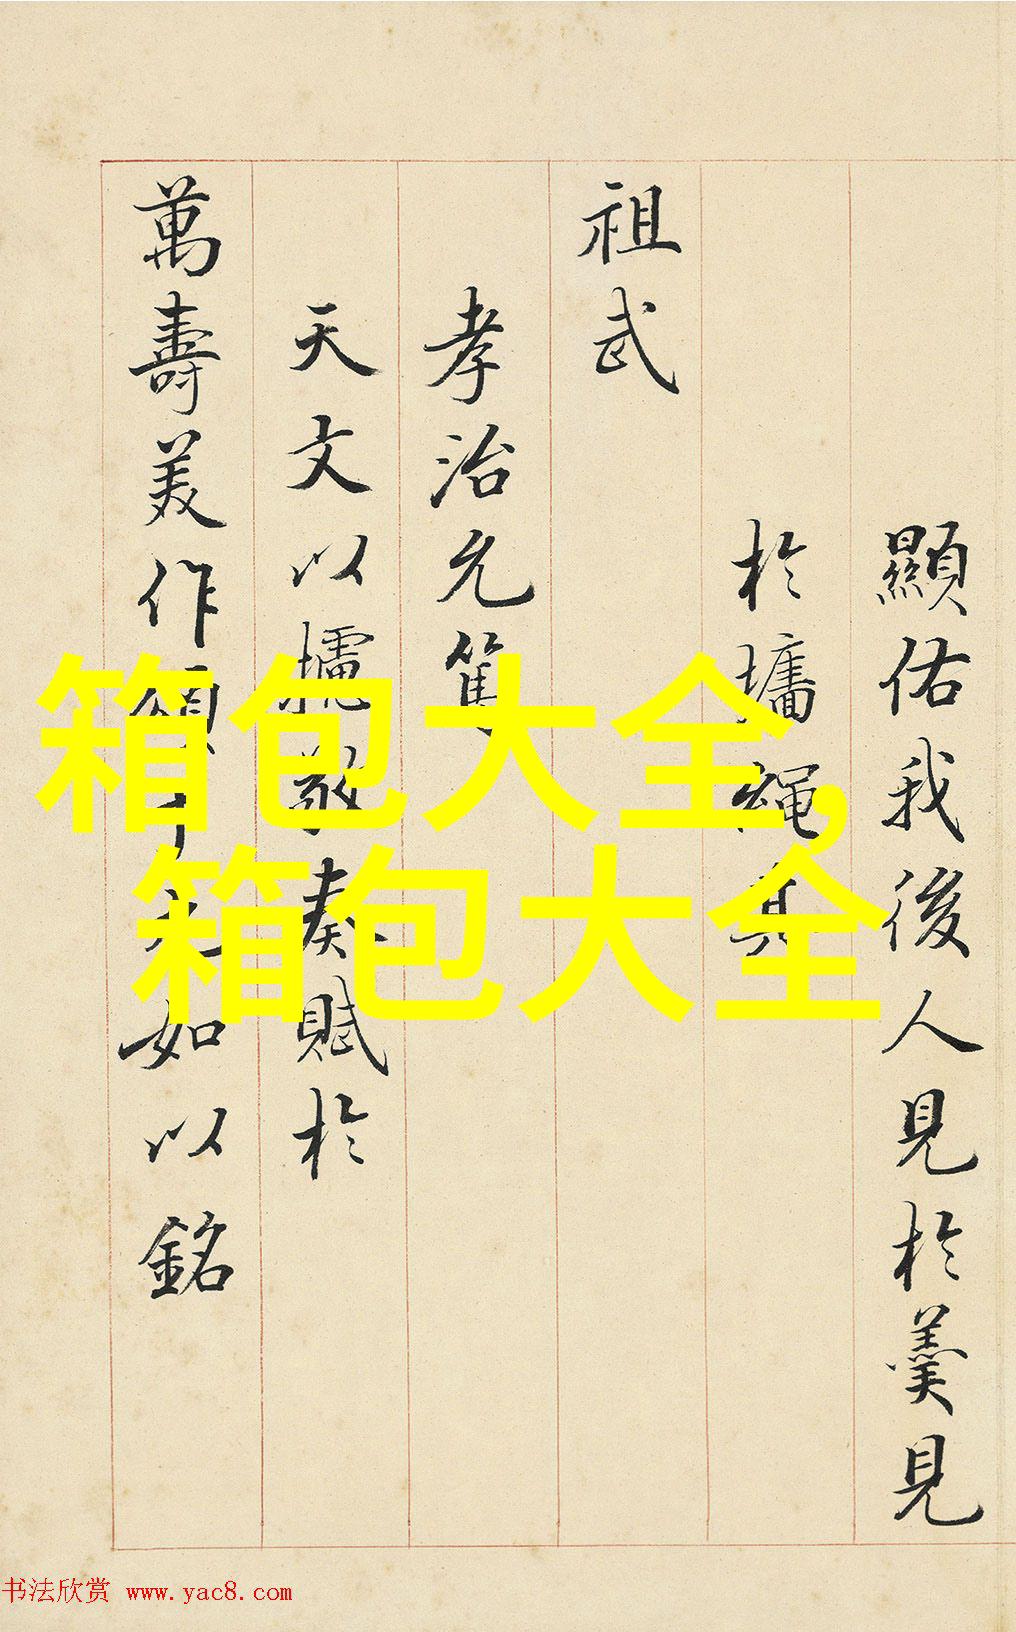 顯佑我後人見於羹見
於墻繩其
祖武
孝治允篤
天文以攄奏賦於
萬壽美作頌如以銘
箱包大全,
箱包大全
书法欣赏 www.yac8.com